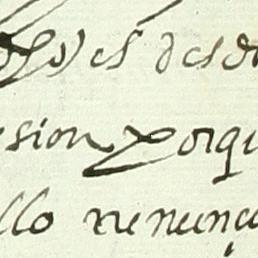 es desde
sion porqu
llo renunça